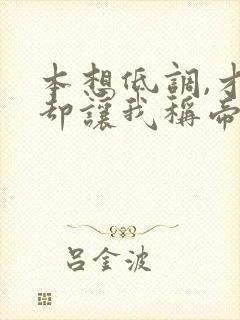 本想低調,才
却讓我稱帝
吕金波